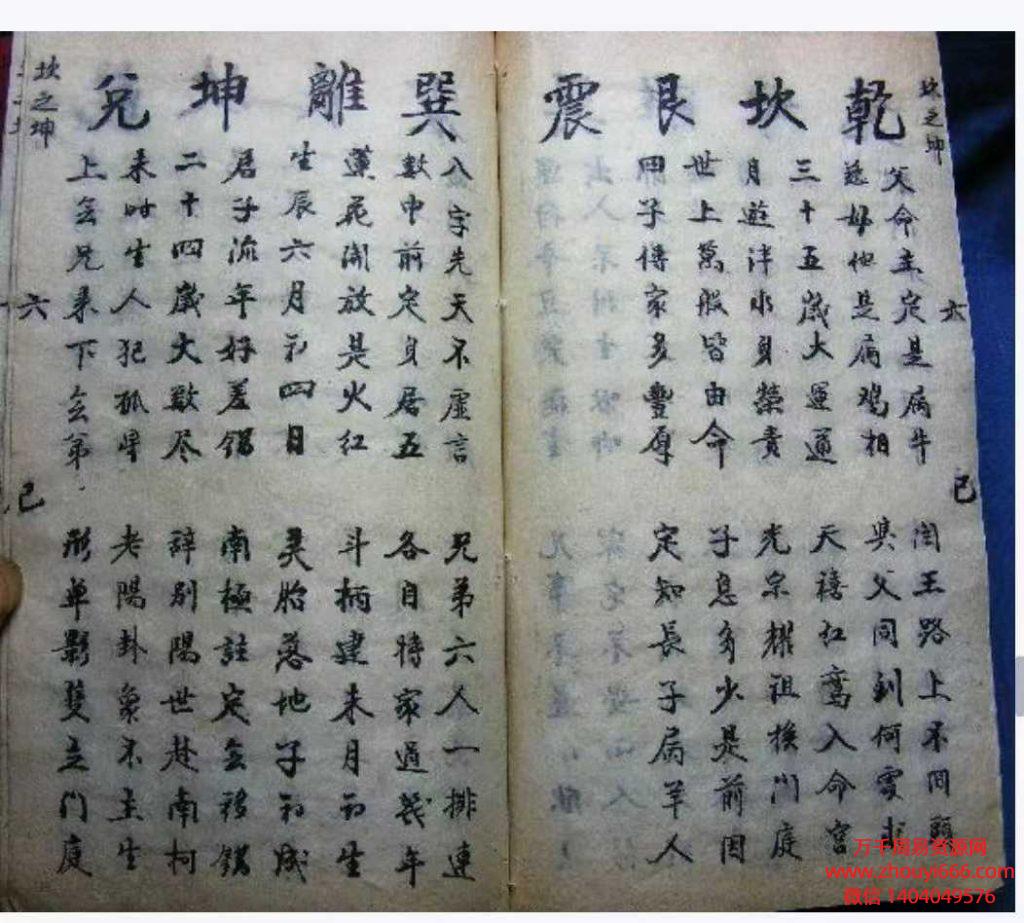 坎之坤
六
巳
乾 坎 艮 震
父命主定是属牛
闰王路上不回頭
慈母他是属鸡相
與父同到何處求
三十五歲大運通
天禧红鸾入命宫
月遊泮水身榮貴
光宗耀祖換門庭
世上萬般皆由命
子息多少是前因
四子傳家多豐厚
定知長子属羊人
巽 離 坤 兌
八字先天不虛言
兄弟六人一排連
數中前定身居五
各自持家過幾年
蓮花開放是火红
斗柄建未月初生
生辰六月初四日
灵胎落地子初成
君子流年好差錯
南極註定移錯
二十四歲大數尽
辞别陽世赴南柯
来時生人犯孤星
老陽卦象不主生
上无兄来下无弟
形單影隻立門庭
坎之坤
六
巳
万千周易资源网
www.zhouyi666.com
微信 1404049576